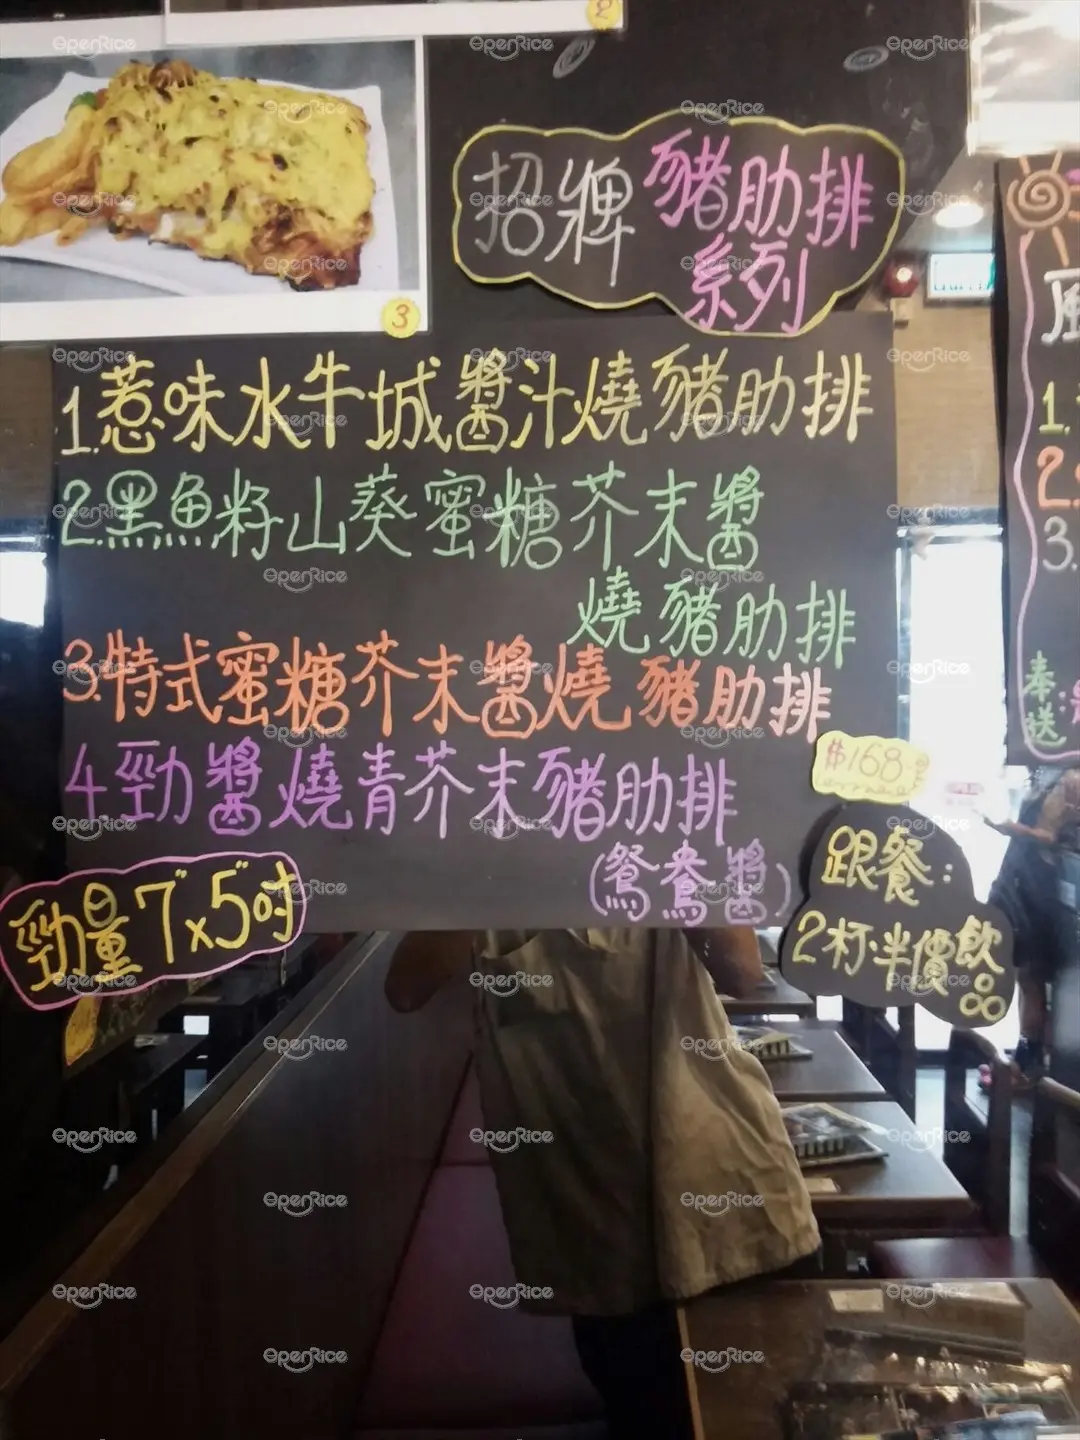 2
3
招牌豬肋排
系列
1.惹味水牛城醬汁燒豬肋排
2.黑魚籽山葵蜜糖芥末醬
燒豬肋排
3.特式蜜糖芥末醬燒豬肋排
4.勁醬燒青芥末豬肋排
(鴛鴦醬)
$168
勁量7"x5"吋
跟餐:
2杯半價飲品
風
1.
2.
3.
奉送:
OpenRice